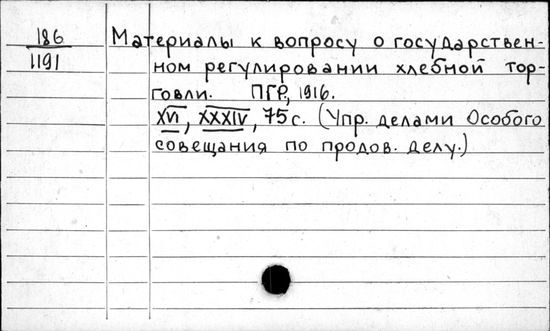 186
1191
Материалы к вопросу о государствен-
ном регулировании хлебной тор-
говли. ПГР, 1916.
XVI, XXXIV, 75 с. (Упр. делами Особого
совещания по продов. делу.)